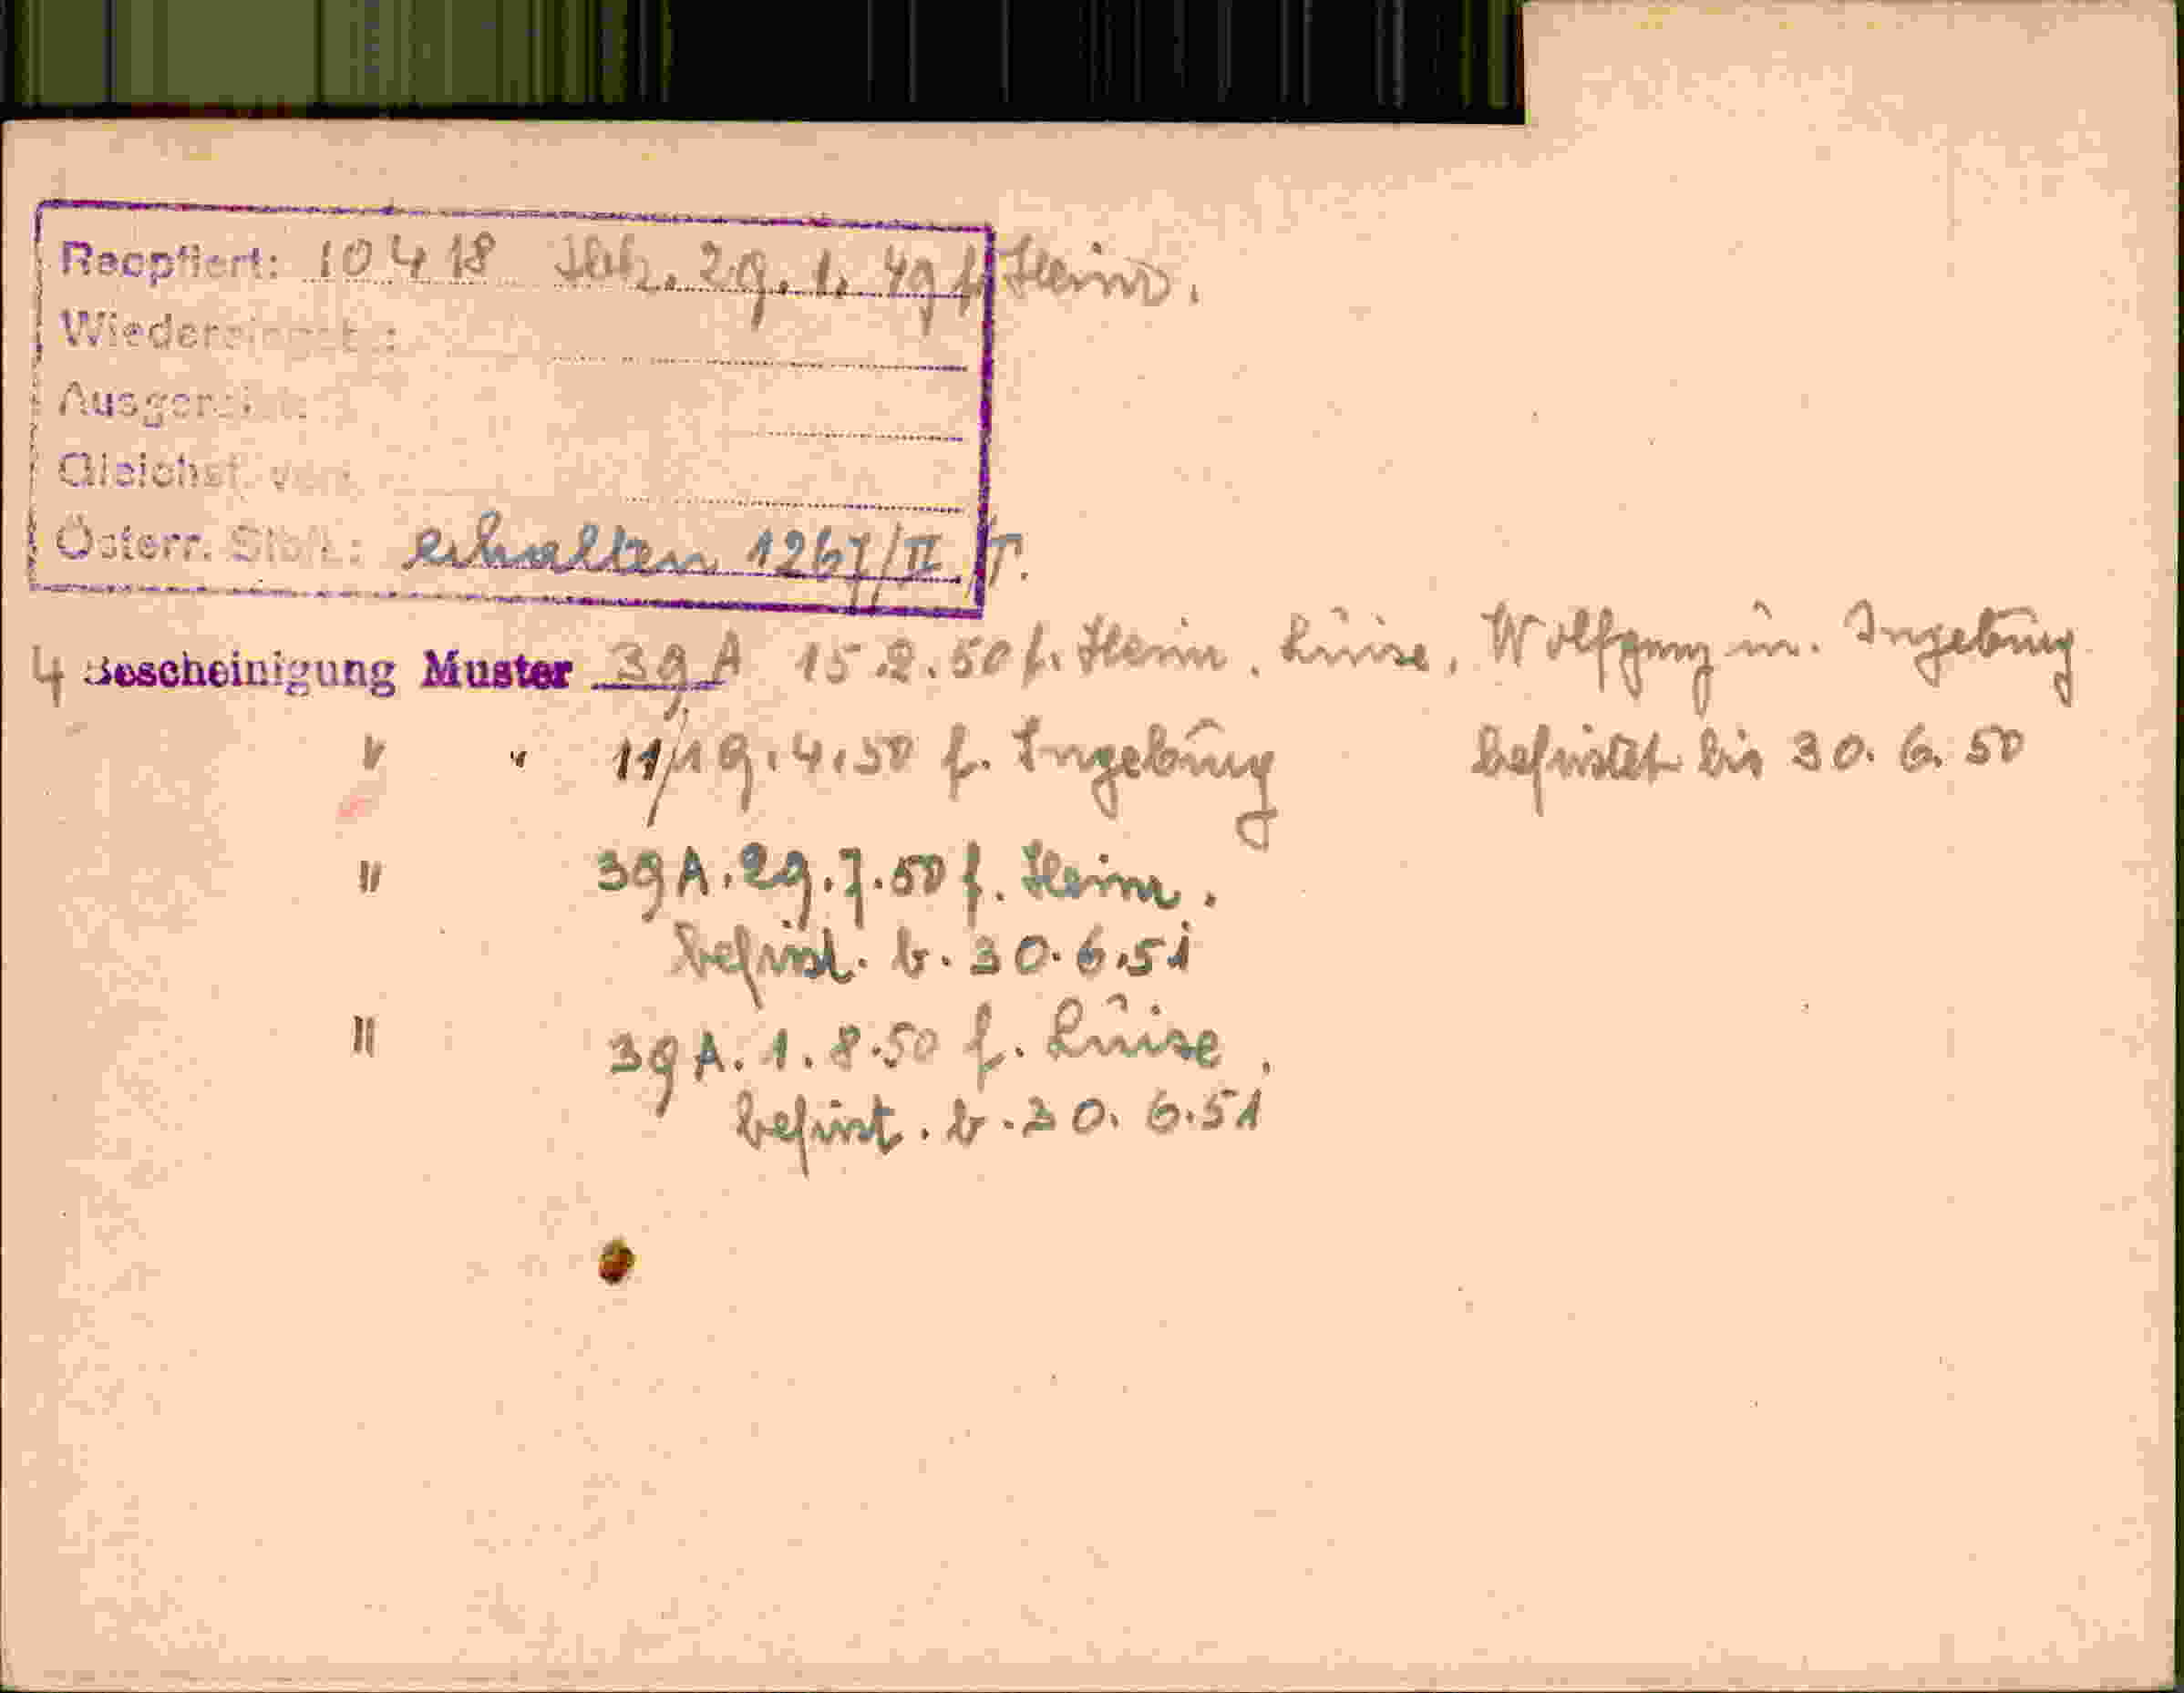 Reoptiert: 10418 Slzb. 29. 1. 49 f. Heinr.
Wiedereingeb.:
Ausgereist:
Gleichst. v.:
Österr. Stbft.: erhalten 1267/II/T.
4 Bescheinigung Muster 39A 15.2.50 f. Heinr., Luise, Wolfgang u. Ingeburg
" " 11/19.4.50 f. Ingeburg befristet bis 30.6.50
" 39A. 29.7.50 f. Heinr.
befrist. b. 30.6.51
" 39A. 1.8.50 f. Luise.
befrist. b. 30.6.51